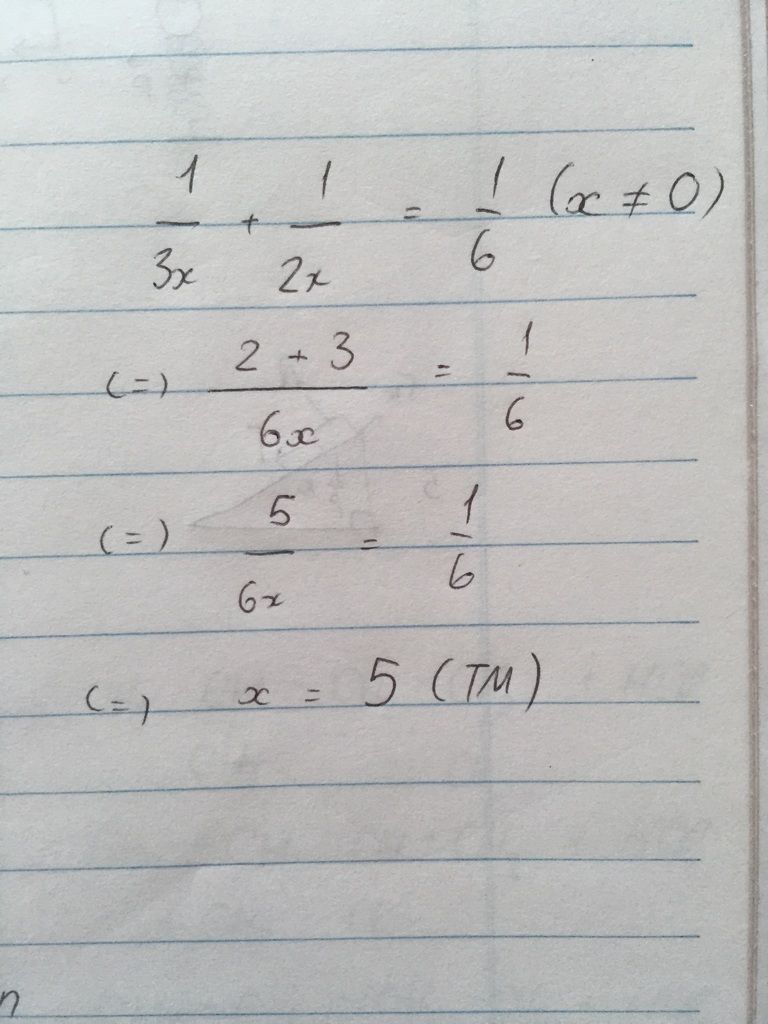 1/3x + 1/2x = 1/6 (x ≠ 0)
(=) 2 + 3/6x = 1/6
(=) 5/6x = 1/6
(=) x = 5 (TM)
n